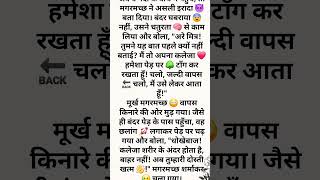 तो मगरमच्छ ने असली इरादा 😈
बता दिया। बंदर घबराया 😨
नहीं, उसने चतुरता 🧠 से काम
लिया और बोला, "अरे मित्र!
तुमने यह बात पहले क्यों नहीं
बताई? मैं तो अपना कलेजा ❤️
हमेशा पेड़ पर 🌳 टाँग कर
रखता हूँ! चलो, जल्दी वापस
🔙 चलो, मैं उसे लेकर आता
हूँ!"
मूर्ख मगरमच्छ 😳 वापस
किनारे की ओर मुड़ गया। जैसे
ही बंदर पेड़ के पास पहुँचा, वह
छलांग 🚀 लगाकर पेड़ पर चढ़
गया और बोला, "धोखेबाज!
कलेजा शरीर के अंदर होता है,
बाहर नहीं! अब तुम्हारी दोस्ती
खत्म ✋!" मगरमच्छ शर्माकर
चला गया।